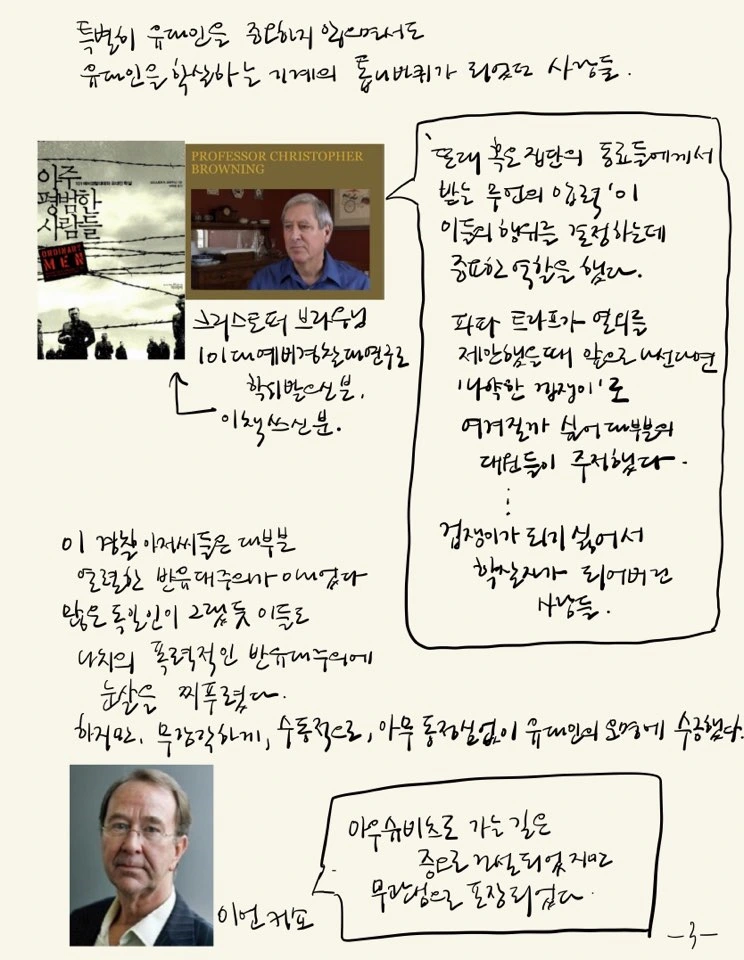 특별히 유대인을 증오하지 않으면서도
유대인을 학살하는 기계의 톱니바퀴가 되었던 사람들.
아주
평범한
사람들
ORDINARY
MEN
PROFESSOR CHRISTOPHER
BROWNING
크리스토퍼 브라우닝
101대예비경찰대연구로
학위받으신분.
이책쓰신분.
'또래 혹은 집단의 동료들에게서
받는 무언의 압력'이
이들의 행위를 결정하는데
중요한 역할을 했다.
파파 트라프가 열외를
제안했을때 앞으로 나선다면
'나약한 겁쟁이'로
여겨질까 싫어 대부분의
대원들이 주저했다.
⋮
겁쟁이가 되기 싫어서
학살자가 되어버린
사람들.
이 경찰 아저씨들은 대부분
열렬한 반유대주의가 아니었다
많은 독일인이 그랬듯 이들도
나치의 폭력적인 반유대주의에
눈살을 찌푸렸다.
하지만, 무감각하게, 수동적으로, 아무 동정심없이 유대인의 운명에 수긍했다.
이언 커쇼
아우슈비츠로 가는 길은
증오로 건설되었지만
무관심으로 포장되었다.
-3-